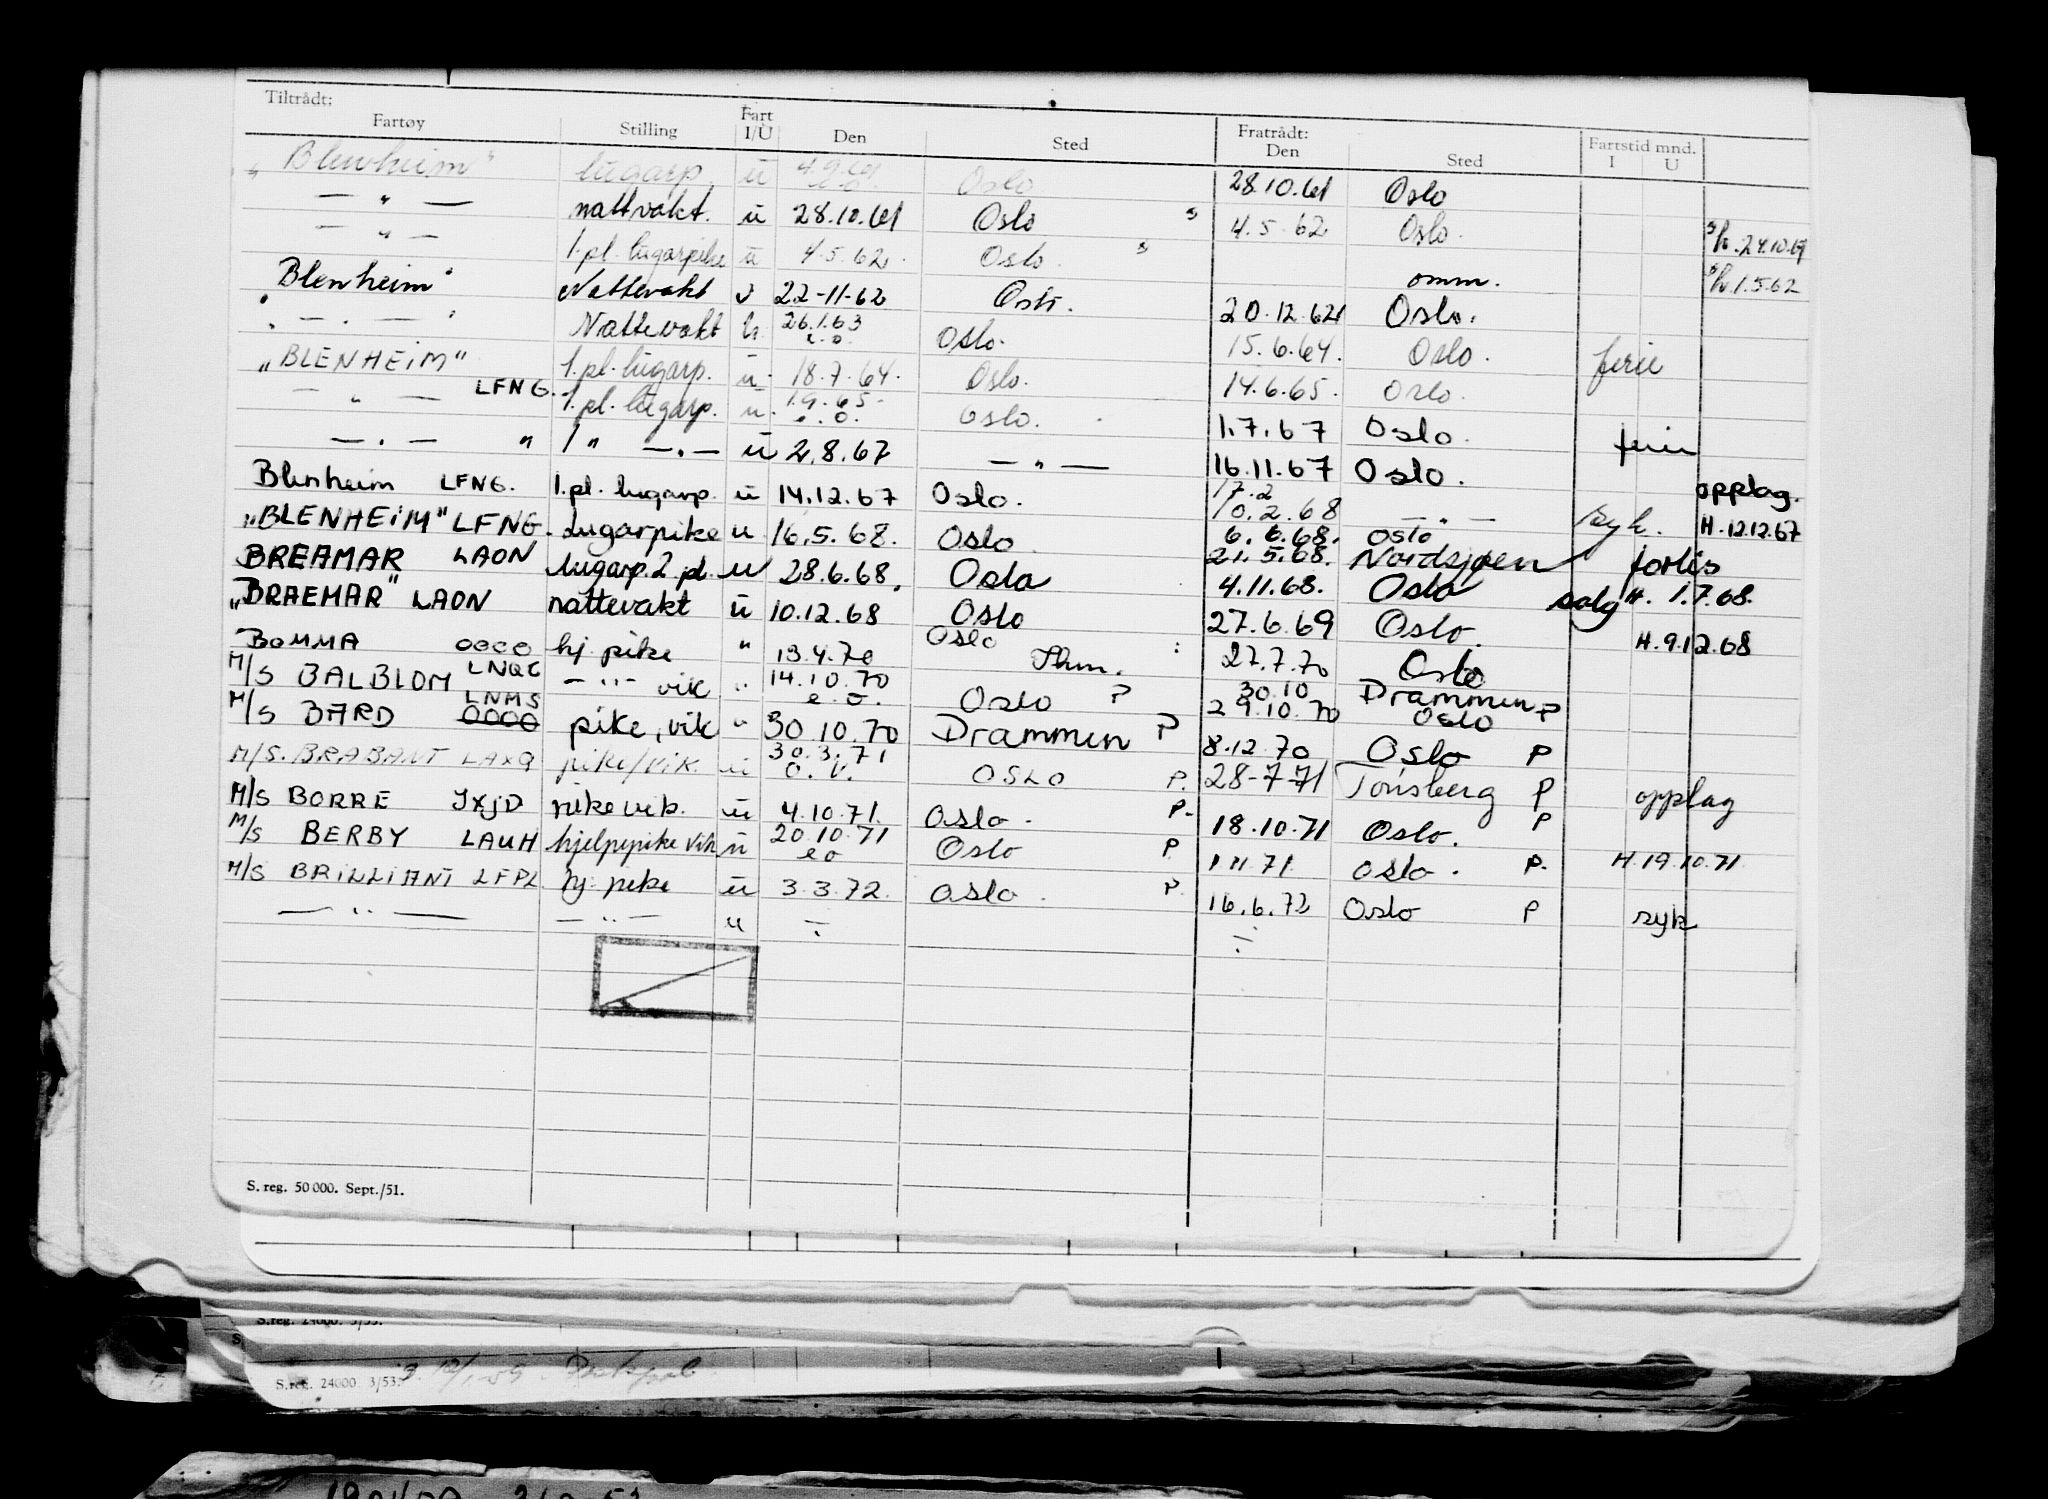 Tiltrådt: Fratrådt:
Fartøy Stilling Fart I/U Den Sted Den Sted Fartstid mnd. I U
"Blenheim" lugarp. u 4.9.61 Oslo 28.10.61 Oslo
— " — nattvakt. u 28.10.61 Oslo s 4.5.62 Oslo. 24.10.61
— " — 1.pl. lugarpike u 4.5.62. Oslo. s omm. 1.5.62
"Blenheim" Nattevakt u 22-11-62 Oslo. 20.12.62 Oslo.
" — . — " Nattevakt u. 26.1.63 e.o. Oslo. 15.6.64. Oslo. ferie
"BLENHEIM" 1.pl. lugarp. u. 18.7.64. Oslo. 14.6.65. Oslo.
— " — LFNG. 1.pl. lugarp. u. 1.9.65. e.o. Oslo. 1.7.67 Oslo. ferie
— . — " 1 " — . — u 2.8.67 — " — 16.11.67 Oslo. opplag.
Blenheim LFNG. 1.pl. lugarp. u 14.12.67 Oslo. 17.2 10.2.68 — " — syk. H.12.12.67
"BLENHEIM" LFNG. Lugarpike u 16.5.68. Oslo 6.6.68. Oslo 21.5.68. Nordsjøen forlis
BREAMAR LAON lugarp. 2 pl. u 28.6.68. Oslo 4.11.68. Oslo salg H. 1.7.68.
"BRAEMAR" LAON nattevakt u 10.12.68 Oslo 27.6.69 Oslo. H.9.12.68
BOMMA OOCO hj. pike " 13.4.70 Oslo 27.7.70 Oslo
M/S BALBLOM LNQC — " — vik " 14.10.70 e.o. Oslo P 30.10 Drammen P 29.10.70 Oslo
M/S BARD LNMS OOCO pike, vik " 30.10.70 Drammen P 8.12.70 Oslo P
M/S. BRABANT LAXQ pike/vik. u 30.3.71 o.v. OSLO P. 28-7-71 Tønsberg P opplag
M/S BORRE JXJD pike vik. u 4.10.71. Oslo. P. 18.10.71 Oslo. P
M/S BERBY LAUH hjelpepike vik u 20.10.71 eo Oslo P 1.11.71. Oslo. P. H.19.10.71
M/S BRILLIANT LFPL hj. pike u 3.3.72. Oslo. P. 16.6.72 Oslo P syk
— " — — " — u ÷ ÷
S. reg. 50 000. Sept./51.
S.reg. 24000. 3/53.
S.reg. 24000 3/53.